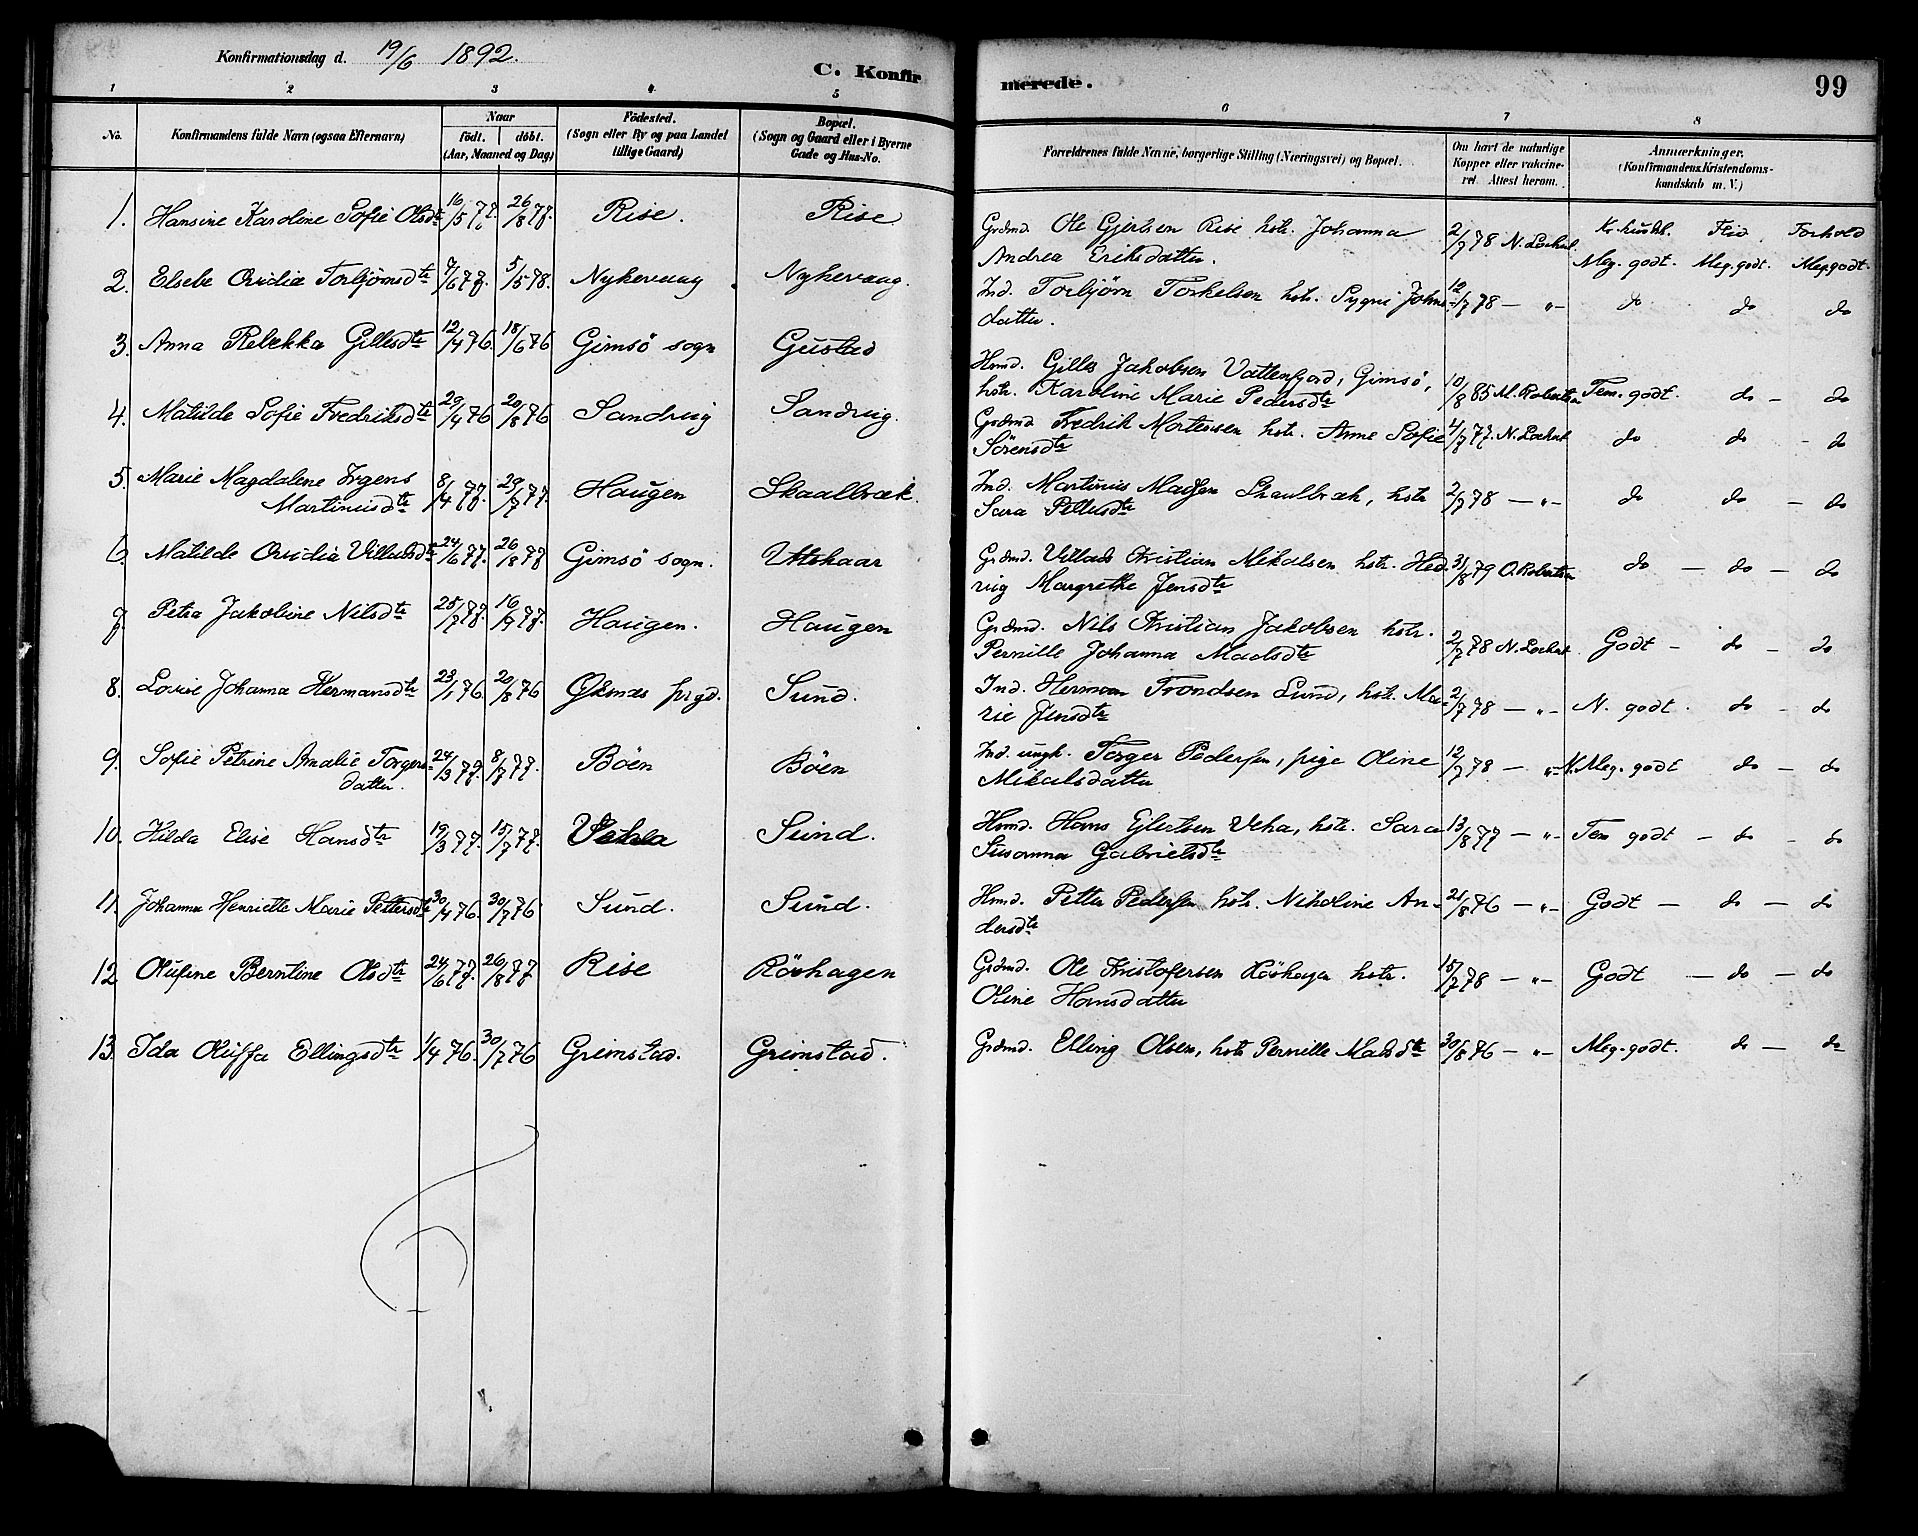 Konfirmationsdag d. 19/6 1892.
C. Konfirmerede.
99
1 2 3 4 5 6 7 8
No. Konfirmandens fulde Navn (ogsaa Efternavn)
Naar
födt. döbt.
(Aar, Maaned og Dag)
Födested.
(Sogn eller By og paa Landet
tillige Gaard)
Bopæl.
(Sogn og Gaard eller i Byerne
Gade og Hus-No.
Forældrenes fulde Navne, borgerlige Stilling (Næringsvei) og Bopæl.
Om havt de naturlige
Kopper eller vakcine-
ret. Attest herom.
Anmærkninger.
(Konfirmandens Kristendoms-
kundskab m. V.)
Kr.kundsk. Flid Forhold
1. Hansine Karoline Sofie Olsdtr 16/5 77. 26/8 77. Rise. Rise
Grdmd. Ole Gjertsen Rise hstr. Johanna 2/7 78 N. Lockert Meg. godt. Meg. godt. Meg. godt.
Andrea Eriksdatter.
2. Elsebe Ovidia Torbjörnsdtr 7/6 77. 5/5 78. Nykevaag Nykevaag.
Ind. Torbjørn Torkelsen hstr. Sygni Johns- 12/7 78 — " — do do do
datter.
3. Anna Rebekka Gillesdtr 12/4 76. 18/6 76 Gimsö sogn Gustad
Hmd. Gilles Jakobsen Vattenfjord, Gimsö,
hstr. Karoline Marie Pedersdtr 10/8 85 M. Robertsen Tem. godt. do — do
4. Matilde Sofie Fredriksdtr 29/4 76 20/8 76 Sandvig Sandvig.
Grdmd. Fredrik Mortensen hstr. Anne Sofie 4/7 77. N. Lockert do do - do
Sörensdtr
5. Marie Magdalene Irgens 8/4 77. 29/7 77. Haugen Skaalbræk.
Martinusdtr
Ind. Martinus Madsen Skaalbræk, hstr 2/7 78 — " — do do — do
Sara Pettersdtr
6. Matilde Ovidia Villadsdtr 24/6 77. 26/8 77 Gimsö sogn. Utskaar
Grdmd. Villads Kristian Mikalsen hstr. Hed- 31/8 79 O. Robertsen do — do — do
vig Margrethe Jensdtr
7. Petra Jakobine Nilsdtr 25/7 77. 16/9 77. Haugen. Haugen
Grdmd. Nils Kristian Jakobsen hstr.
Pernille Johanna Madsdtr 2/7 78 N. Lockert. Godt — do — do
8. Lovise Johanna Hermansdtr 23/1 76. 20/8 76 Öksnæs prgd. Sund.
Ind. Herman Trondsen Sund, hstr. Ma- 2/7 78 — " — N. godt. do — do
rie Jensdtr
9. Sofie Petrine Amalie Torgers- 24/3 77. 8/7 77. Böen Böen
datter.
Ind. ungk. Torger Pedersen, pige Oline 12/7 78 — " — N. Meg. godt do — do
Mikalsdatter
10. Hilda Elise Hansdtr 19/3 77. 15/7 77. Sund.
Hmd. Hans Ejlertsen Veha, hstr. Sara 13/8 77 — " — Tem godt — do — do
Susanna Gabrielsdtr
11. Johanna Henriette Marie Pettersdtr 30/4 76. 30/7 76 Sund. Sund.
Hmd. Petter Pedersen hstr. Nikoline An- 21/8 76 — " — Godt — do — do
dersdtr
12 Olufine Berntine Olsdtr 24/6 77. 26/8 77. Rise Rövhagen
Grdmd. Ole Kristofersen Rövhagen hstr. 15/7 78 — " — Godt — do — do
Oline Hansdatter
13. Ida Oluffa Ellingsdtr 1/4 76. 30/7 76 Grimstad. Grimstad.
Grdmd. Elling Olsen, hstr Pernille Madsdtr 30/8 76 — " — Meg. godt. do — do